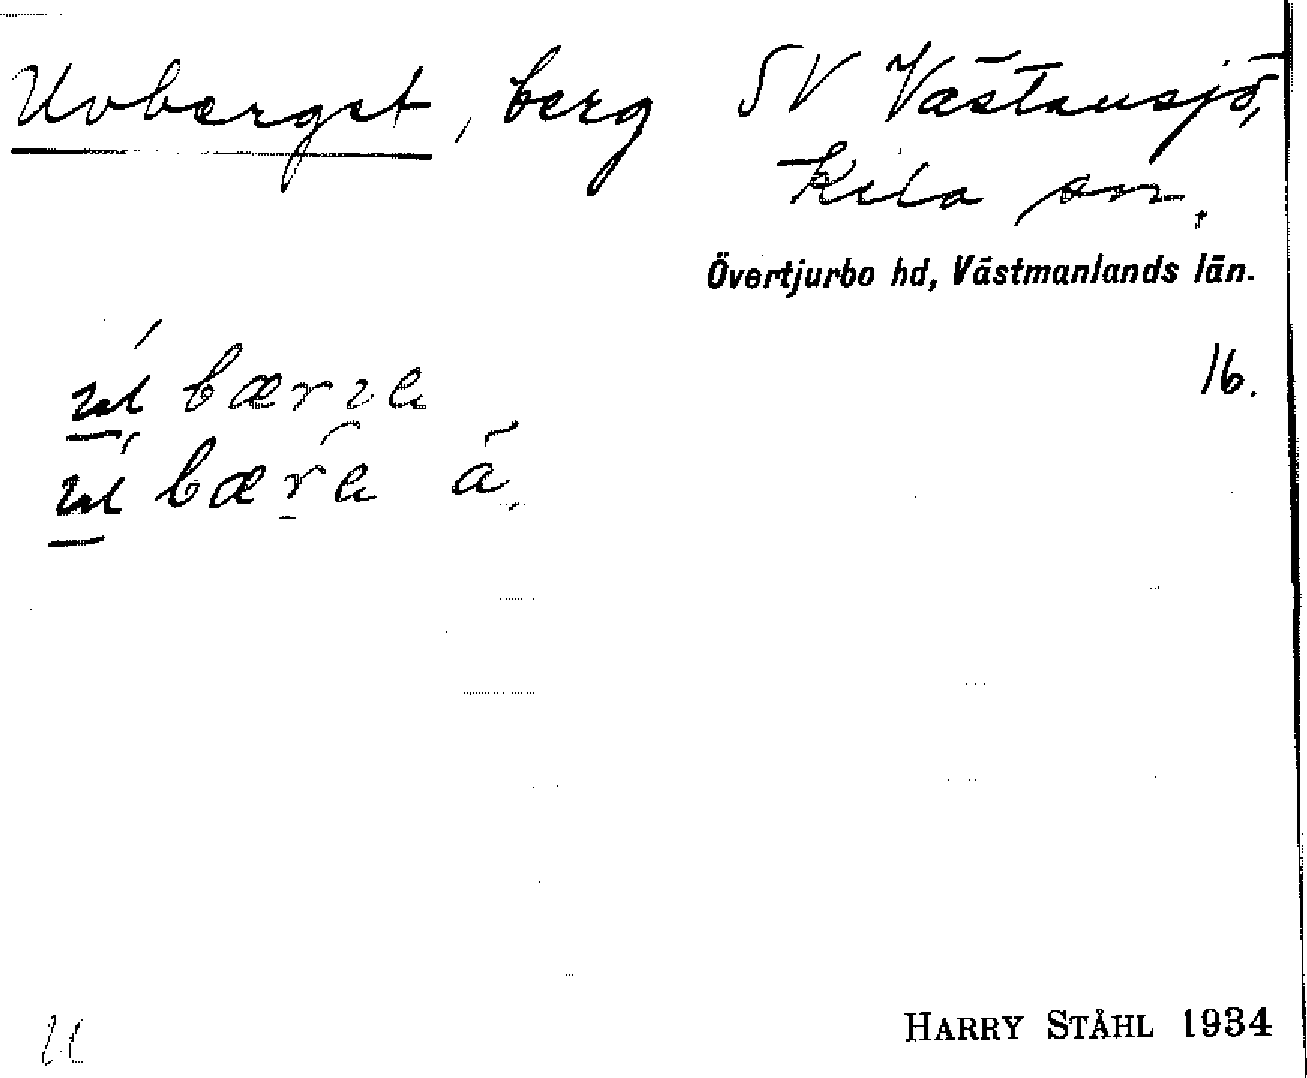 Uvberget, berg SV Västansjö,
Kila sn.
Övertjurbo hd, Västmanlands län.
16.
HARRY STÅHL 1934